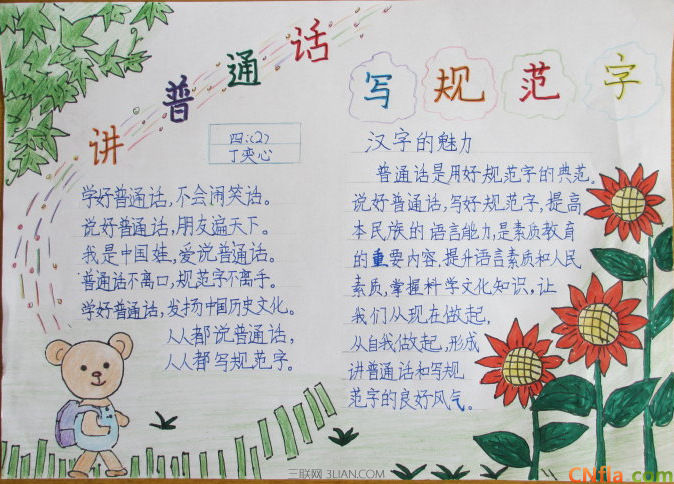 讲普通话
写规范字
四:(2)
丁奕心
学好普通话,不会闹笑话。
说好普通话,朋友遍天下。
我是中国娃,爱说普通话。
普通话不离口,规范字不离手。
学好普通话,发扬中国历史文化。
人人都说普通话,
人人都写规范字。
汉字的魅力
普通话是用好规范字的典范。
说好普通话,写好规范字,提高
本民族的语言能力,是素质教育
的重要内容,提升语言素质和人民
素质,掌握科学文化知识,让
我们从现在做起,
从自我做起,形成
讲普通话和写规
范字的良好风气。
三联网 3LIAN.COM
CNfla.com